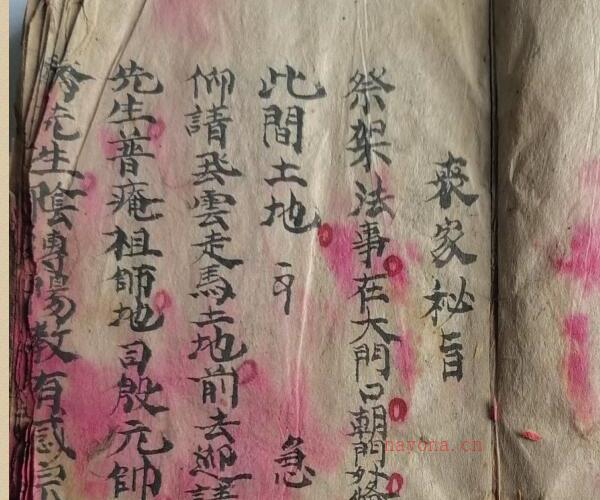 喪家秘旨
祭架法事在大門口朝門外
此間土地 急
仰請飛雲走馬土地前去迎請
先生普庵祖師地司殷元帥
先生陰專陽教有感
nayona.cn